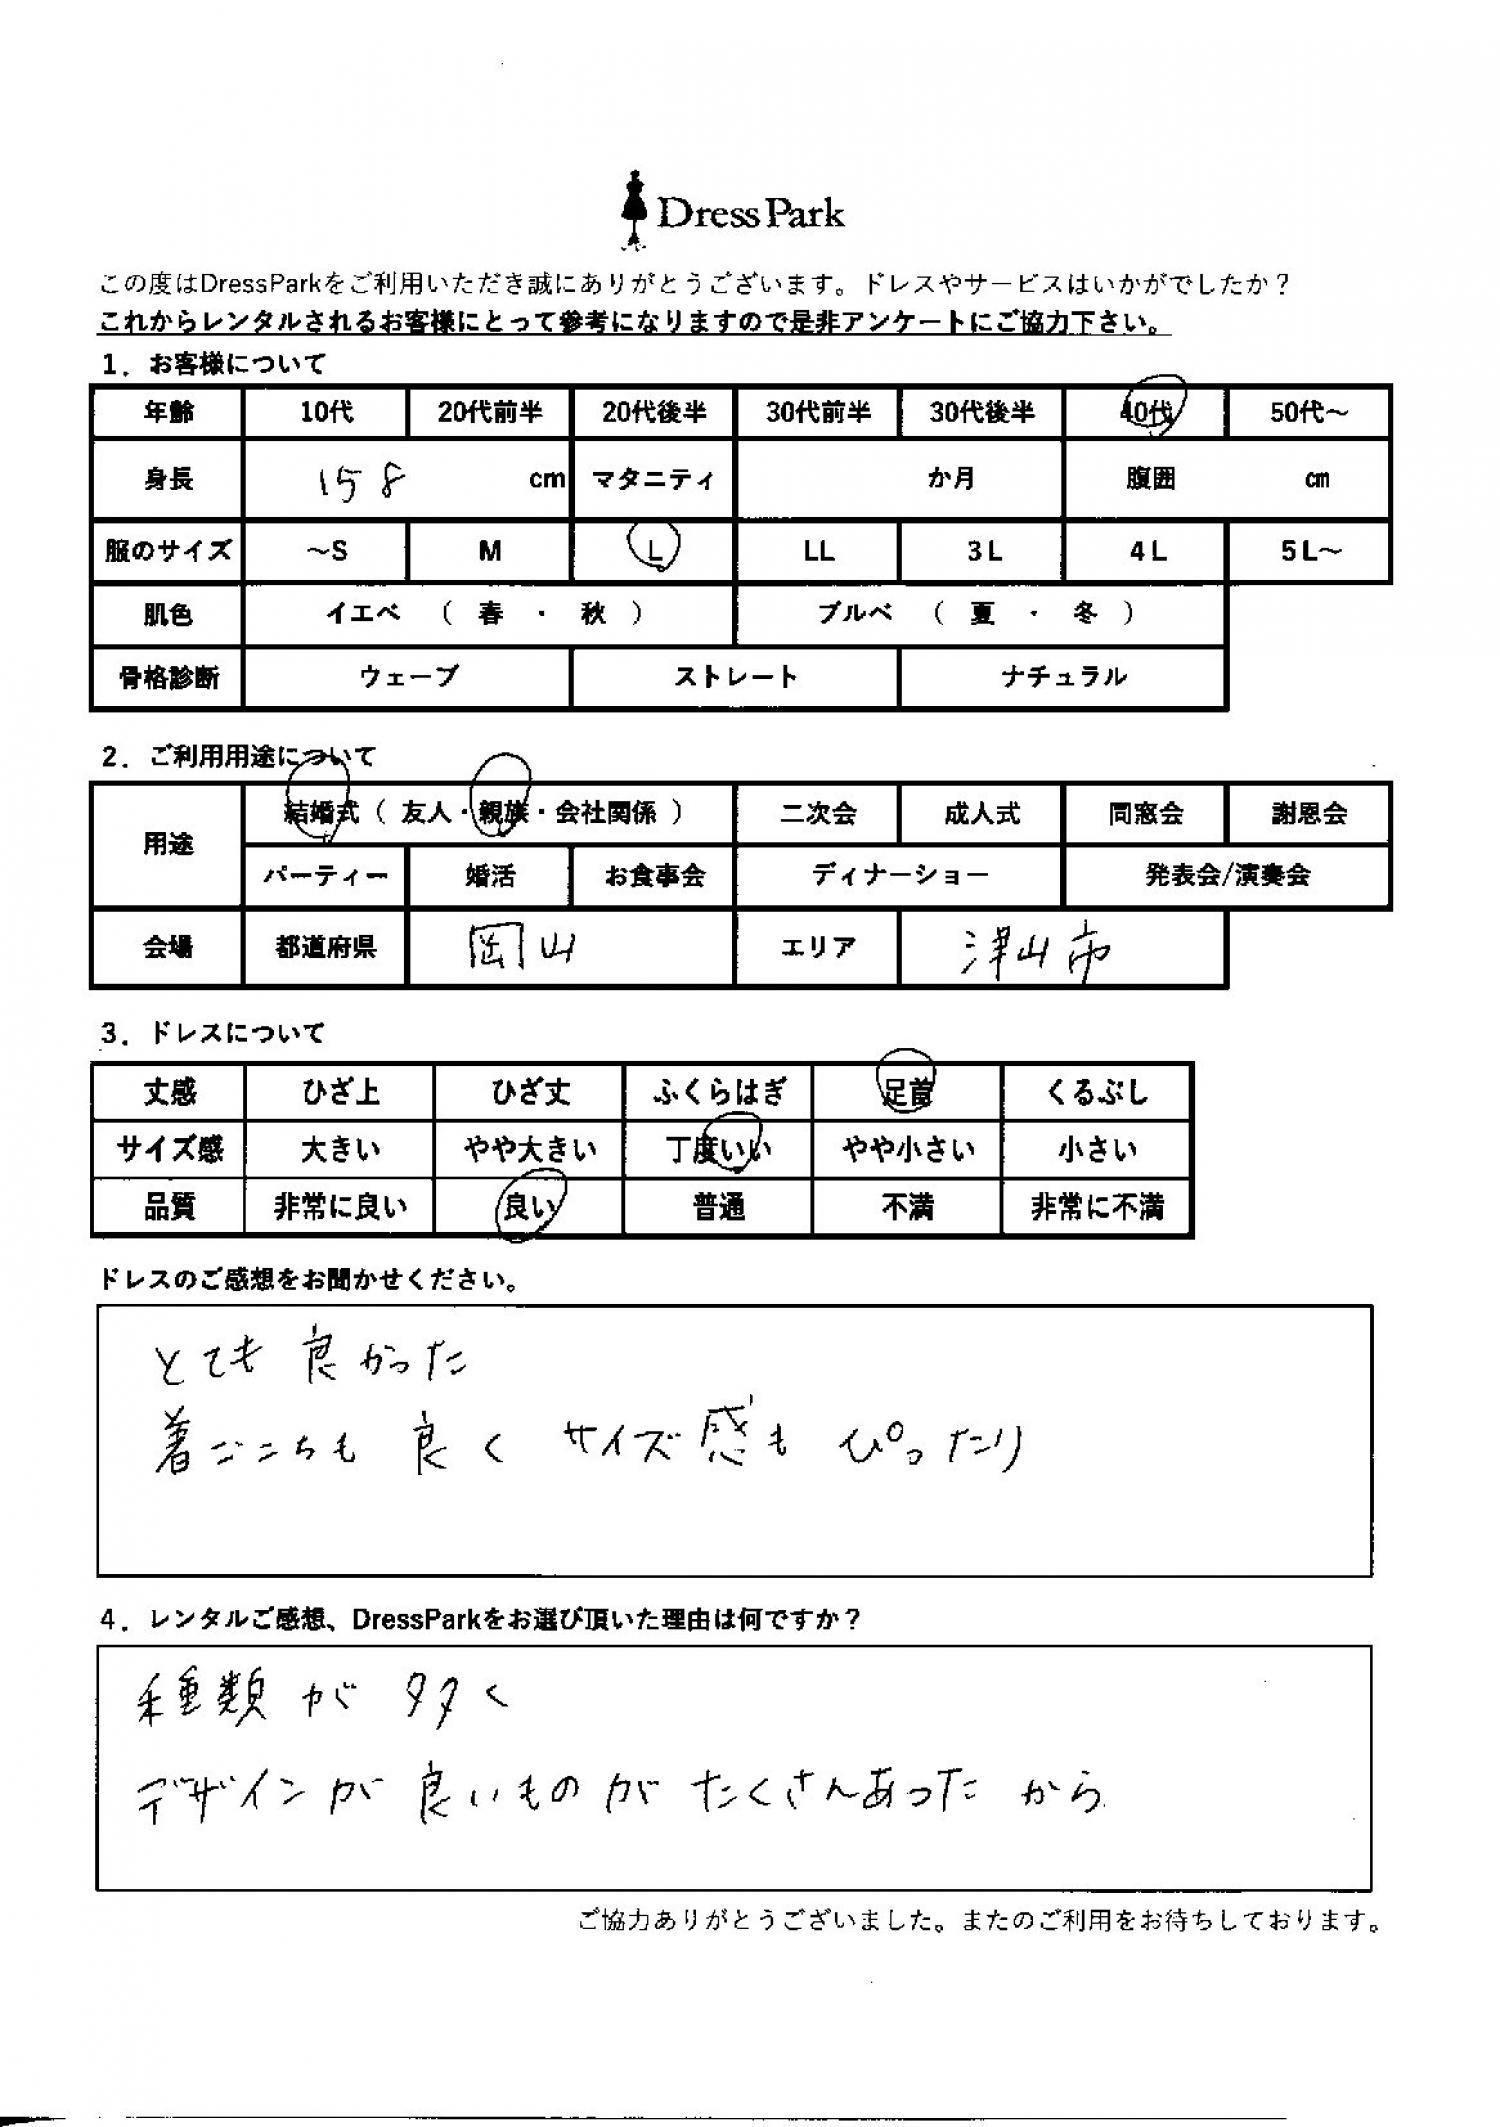 DressPark
この度はDressParkをご利用いただき誠にありがとうございます。ドレスやサービスはいかがでしたか？
これからレンタルされるお客様にとって参考になりますので是非アンケートにご協力下さい。
1．お客様について
年齢 10代 20代前半 20代後半 30代前半 30代後半 40代 50代～
身長 158 cm マタニティ か月 腹囲 ㎝
服のサイズ ～S M L LL 3L 4L 5L～
肌色 イエベ （ 春 ・ 秋 ） ブルベ （ 夏 ・ 冬 ）
骨格診断 ウェーブ ストレート ナチュラル
2．ご利用用途について
用途 結婚式（ 友人・親族・会社関係 ） 二次会 成人式 同窓会 謝恩会
パーティー 婚活 お食事会 ディナーショー 発表会/演奏会
会場 都道府県 岡山 エリア 津山市
3．ドレスについて
丈感 ひざ上 ひざ丈 ふくらはぎ 足首 くるぶし
サイズ感 大きい やや大きい 丁度いい やや小さい 小さい
品質 非常に良い 良い 普通 不満 非常に不満
ドレスのご感想をお聞かせください。
とても良かった
着ごこちも 良く サイズ感も ぴったり
4．レンタルご感想、DressParkをお選び頂いた理由は何ですか？
種類が 多く
デザインが 良いものが たくさんあった から
ご協力ありがとうございました。またのご利用をお待ちしております。